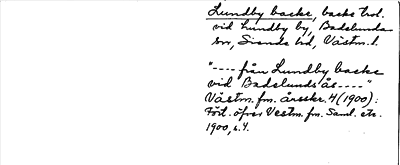 Lundby backe, backe trol.
vid Lundby by, Badelunda
sn, Siende hd, Västm. l.
"---- från Lundby backe
vid Badelunds ås ----"
Västm. fm. årsskr. 4 (1900):
Fört. öfver Vestm. fm. Saml. etc.
1900, s. 4.